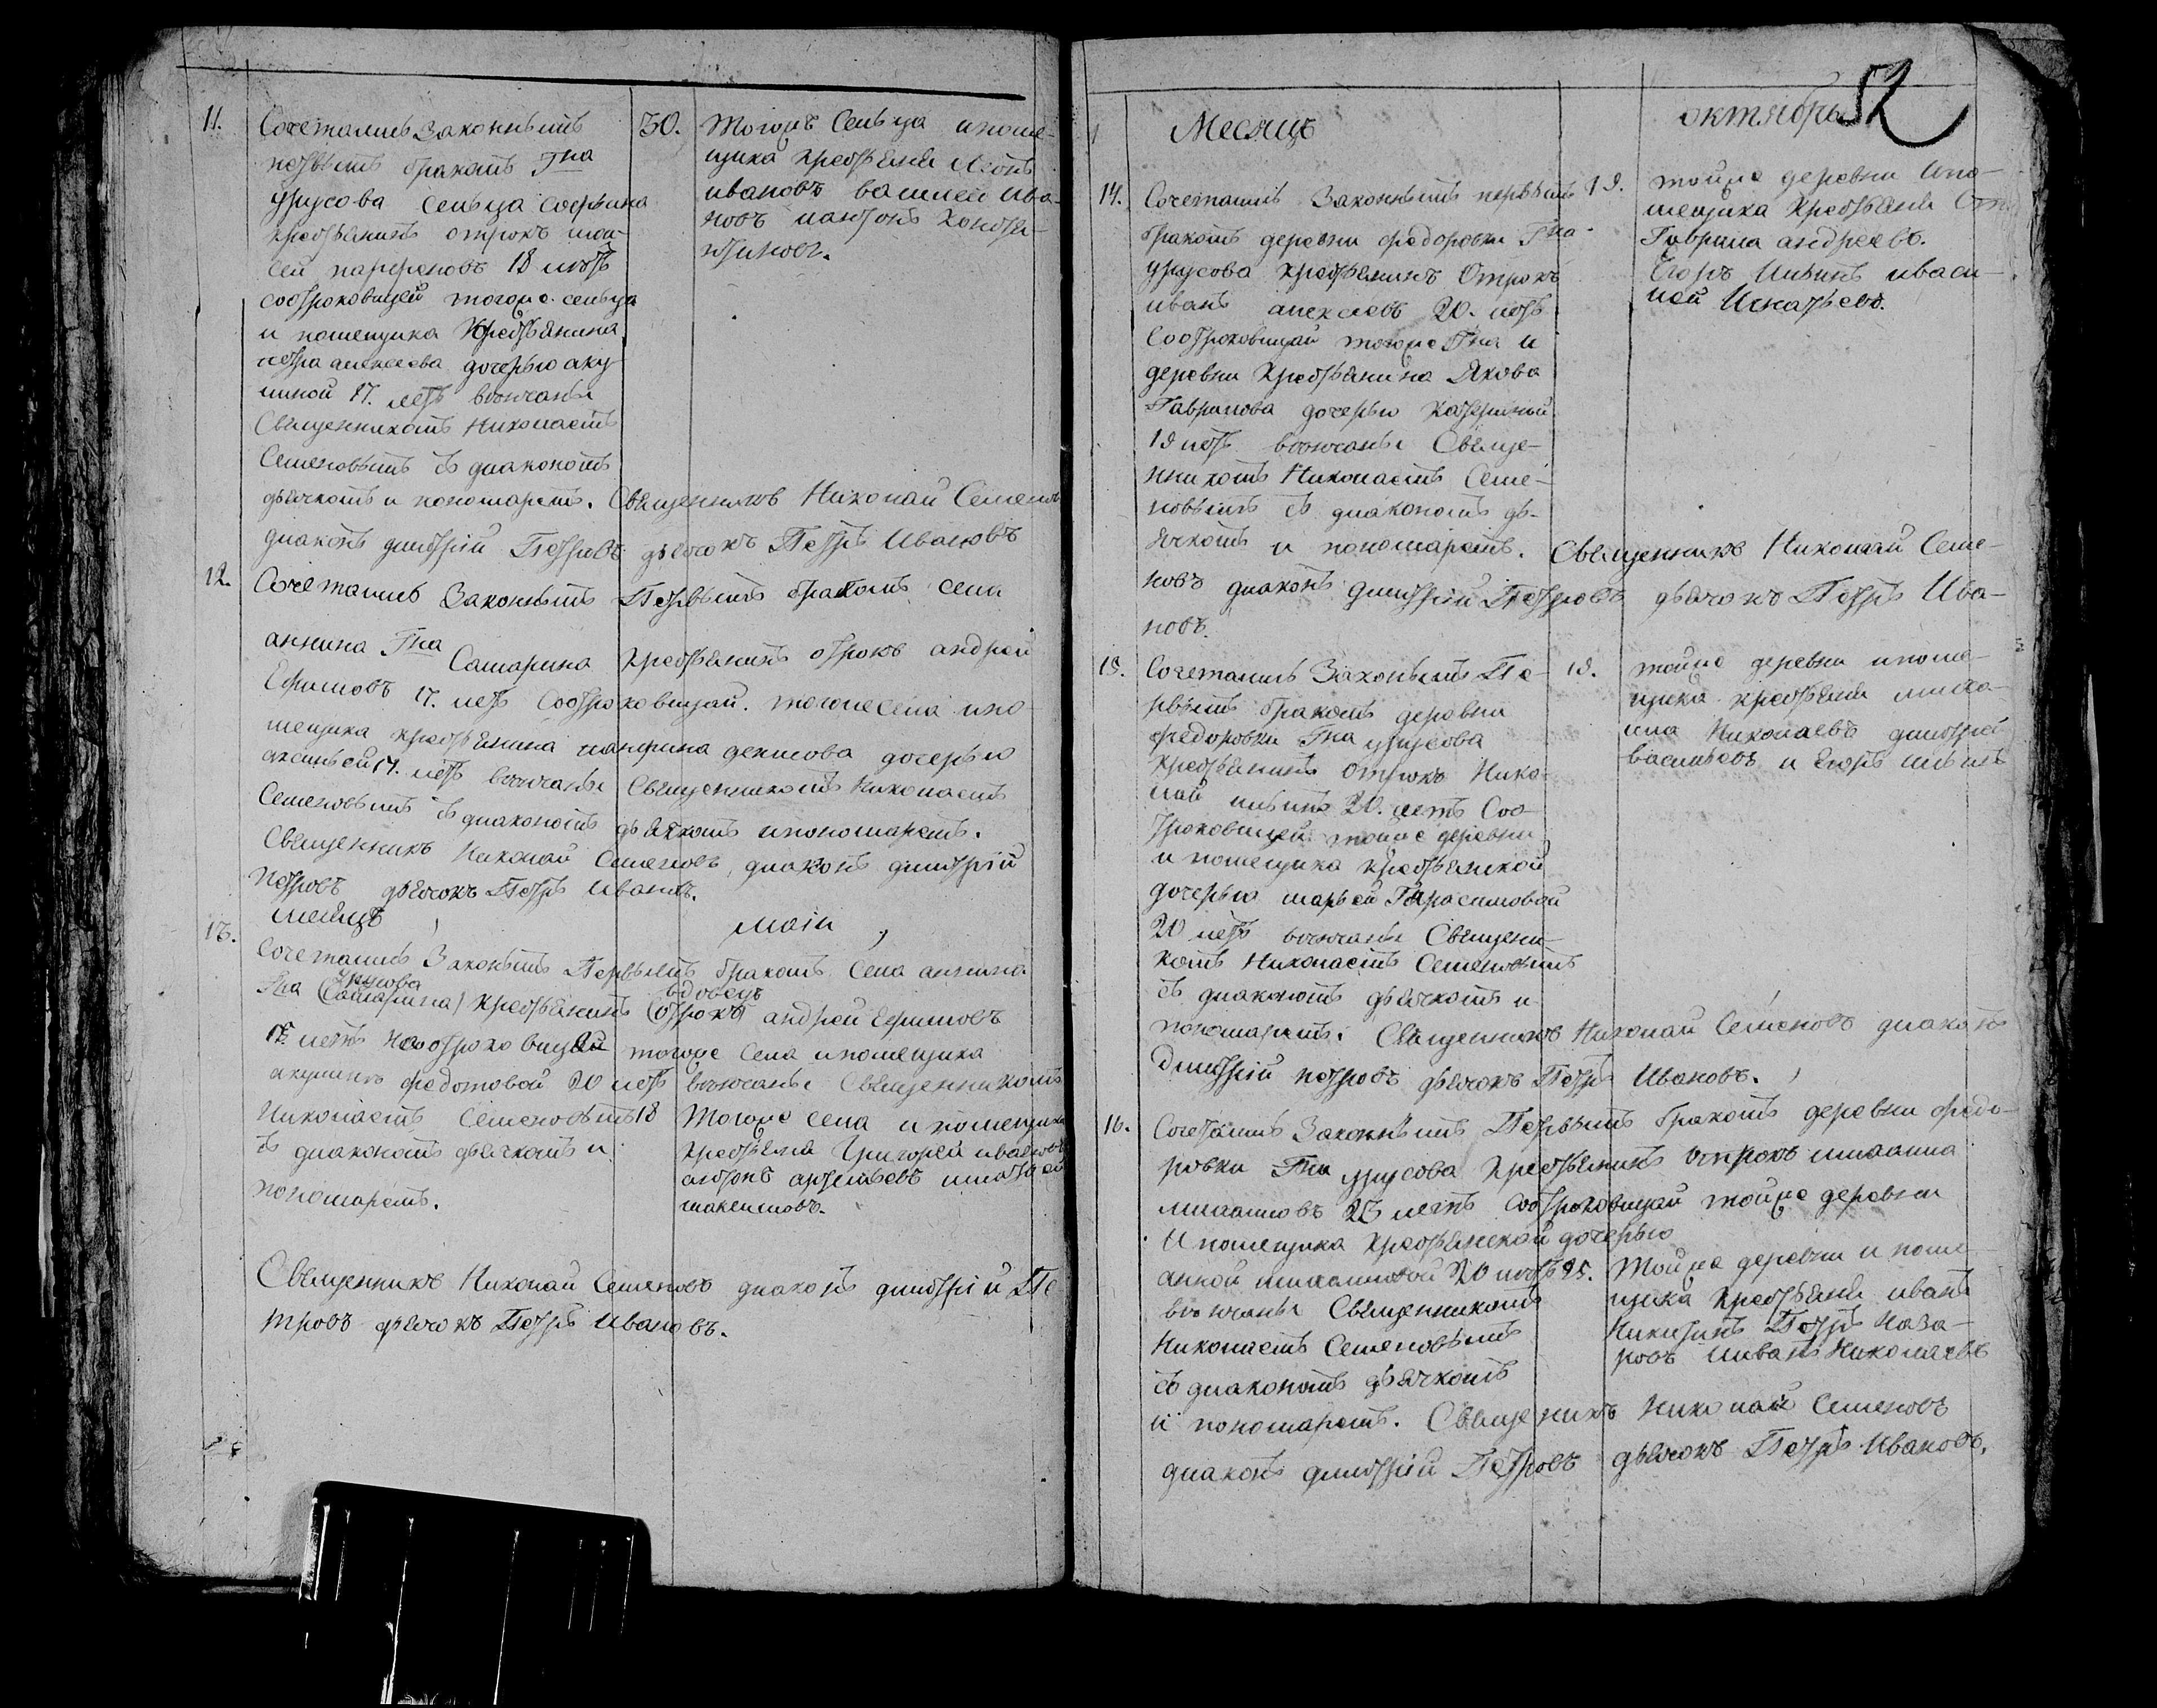 11. Сочетались Законнымъ
первымъ бракомъ Гна
урусова сельца софьина
крестьянинъ отрокъ мои-
сей парфеновъ 18 летъ
сострокови́цей тогоже сельца
и помещика Крестьянина
петра алексеева дочерью аку
линой 17. летъ венчаны
Священникомъ Николаемъ
Семеновымъ съ диакономъ
дьячкомъ и пономаремъ. Священникъ Николай Семенов
диаконъ димитрій Петровъ дьячокъ Петръ Ивановъ
30. Тогожъ Сельца ипоме-
щика крестьяня
ивановъ василей ива-
новъ иантонъ констан-
тиновъ.
12. Сочетались Законнымъ Первымъ бракомъ села
аннина Гна Самарина крестьянинъ отрокъ андрей
Ефимовъ 17. летъ Соотроковицей. тогоже села ипо-
мещика крестьянина панфила денисова дочерью
аксиньей 17. летъ венчаны Священникомъ Николаемъ
Семеновымъ съ диакономъ дьячкомъ ипономаремъ.
Священникъ Николай Семеновъ, диаконъ димитрій
Петровъ дьячокъ Петръ Ивановъ.
месяцъ маія
13. Сочетались Законнымъ Первымъ бракомъ Села аннина
урусова вдовецъ
Гна (Самарина) крестьянинъ (отрокъ) андрей Ефимовъ
летъ тогоже Села ипомещика
федотовой 20 летъ венчаны Священникомъ
Николаемъ Семеновымъ
съ диакономъ дьячкомъ и
пономаремъ.
18 Тогоже села и помещика
крестьяня Григорей ивановъ
антонъ артемьевъ
максимовъ.
Священникъ Николай Семеновъ диаконъ димитрій Пе
тровъ дьячокъ Петръ Ивановъ.
52
Месяцъ октябрь
14. Сочетались Законнымъ первымъ
бракомъ деревни федоровки Гна
урусова крестьянинъ Отрокъ
иванъ алексеевъ 20. летъ
Соотроковицей тогоже Гна и
деревни Крестьянина Якова
Гаврилова дочерью
19 летъ венчаны Свяще-
нникомъ Николаемъ Семе-
новымъ съ диакономъ дь-
ячкомъ и пономаремъ. Священникъ Николай Семе-
новъ диаконъ димитрій Петровъ дьячокъ Петръ Ива-
новъ.
19. тойже деревни ипо-
мещика Крестьяня
Гаврила андреевъ.
Егоръ Ильинъ иваси-
лей Игнатьевъ.
15. Сочетались Законнымъ Пе-
рвымъ бракомъ деревни
федоровки Гна урусова
крестьянинъ Отрокъ Нико-
лай ильинъ 20. летъ Соо-
троковицей тойже деревни
и помещика крестьянской
дочерью марьей Гарасимовой
20 летъ венчаны Священи-
комъ Николаемъ Семеновымъ
съ диакономъ дьячкомъ и
пономаремъ. Священникъ Николай Семеновъ диаконъ
Димитрій петровъ дьячокъ Петръ Ивановъ.
19. тойже деревни ипоме-
щика крестьяня миха-
ила Николаевъ димитрей
васильевъ и Егоръ ильинъ
16. Сочетались Законнымъ Первымъ бракомъ деревни федо-
ровки Гна урусова крестьянинъ отрокъ михаила
михаиловъ 23 летъ Соотроковицей тойже деревни
И помещика крестьянской дочерью
анной михаиловой 20 летъ
венчаны Священникомъ
Николаемъ Семеновымъ
съ диакономъ дьячкомъ
и пономаремъ. Священникъ Николай Семеновъ
диаконъ димитрій Петровъ дьячокъ Петръ Ивановъ.
25. Тойже деревни и поме-
щика Крестьяня иванъ
Никитинъ Петръ Наза-
ровъ Ииванъ Николаевъ